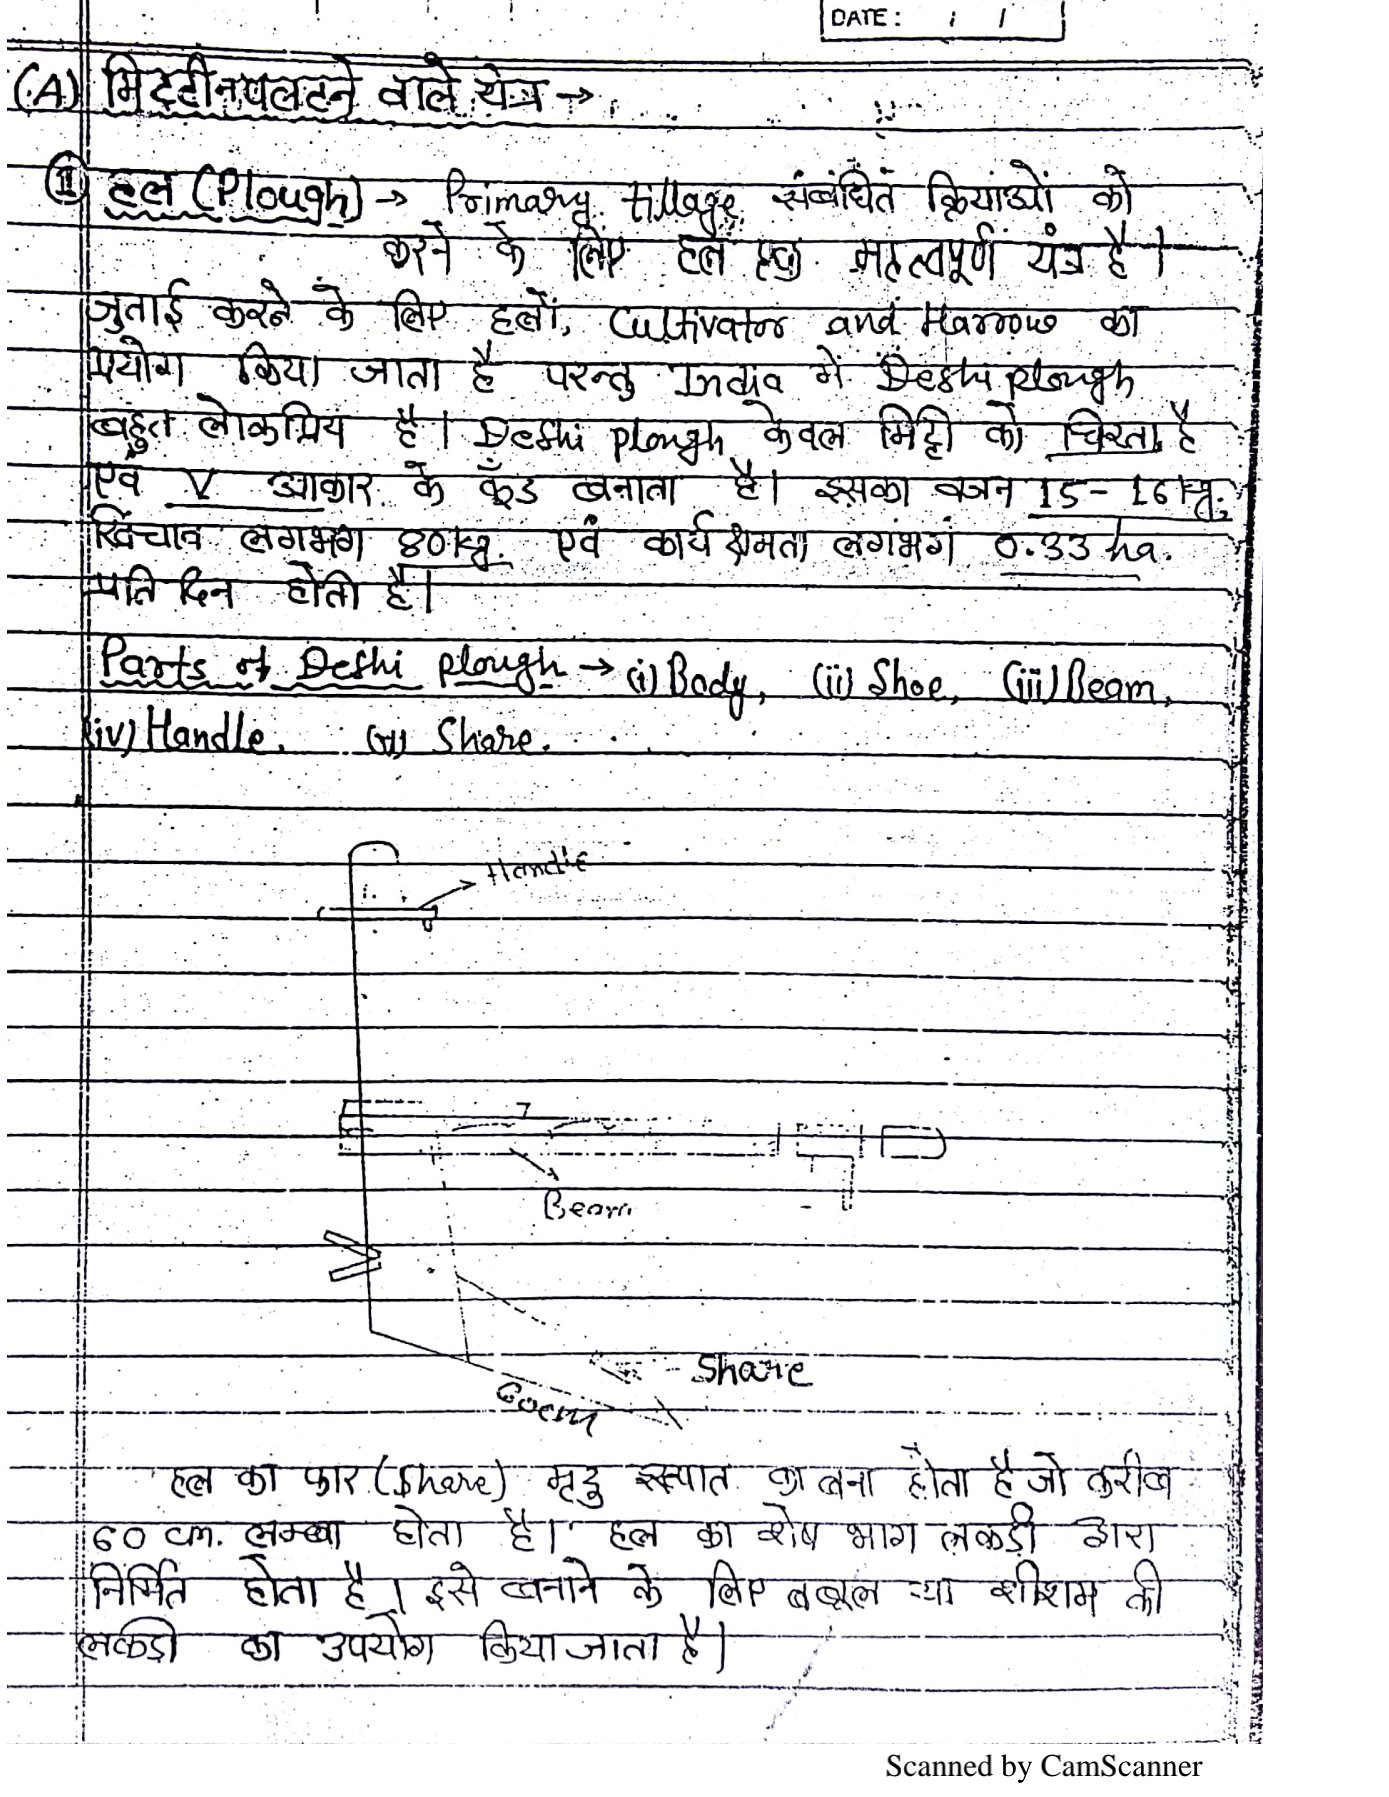 DATE: / /
(A) मिट्टी न पलटने वाले यंत्र →
① हल (Plough) → Primary tillage संबंधित क्रियाओं को
करने के लिए हल एक महत्वपूर्ण यंत्र है।
जुताई करने के लिए हलों, Cultivator and Harrow का
प्रयोग किया जाता है परन्तु India में Deshi plough
बहुत लोकप्रिय है। Deshi plough केवल मिट्टी को चिरता है
एवं V आकार के कूँड बनाता है। इसका वजन 15-16 kg.
खिंचाव लगभग 80 kg. एवं कार्य क्षमता लगभग 0.33 ha.
प्रति दिन होती है।
Parts of Deshi plough → (i) Body, (ii) Shoe, (iii) Beam,
(iv) Handle. Share.
Handle
Beam
Share
हल का फार (Share) मृदु इस्पात का बना होता है जो करीब
60 cm. लम्बा होता है। हल का शेष भाग लकड़ी द्वारा
निर्मित होता है। इसे बनाने के लिए बबूल या शीशम की
लकड़ी का उपयोग किया जाता है।
Scanned by CamScanner